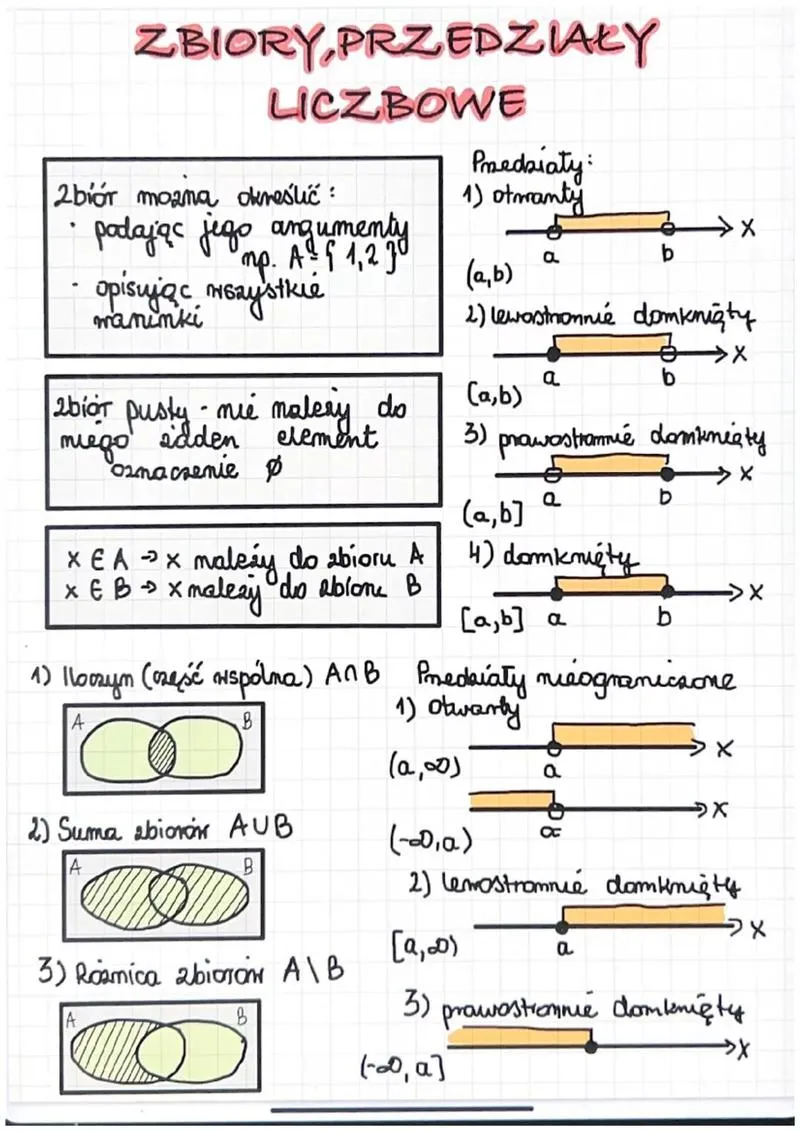 ZBIORY, PRZEDZIAŁY
LICZBOWE
Zbiór można określić:
· podając jego argumenty
np. A={1,2}
· opisując wszystkie
warunki
Zbiór pusty - nie należy do
niego żdden element
oznaczenie ∅
x ∈ A → x należy do zbioru A
x ∈ B → x należy do zbioru B
1) Iloczyn (część wspólna) A∩B
A B
2) Suma zbiorów A∪B
A B
3) Różnica zbiorów A\B
A B
Przedziały:
1) otwarty
x
a b
(a,b)
2) lewostronnie domknięty
x
a b
(a,b)
3) prawostronnie domknięty
x
a b
(a,b]
4) domknięty
x
[a,b] a b
Przedziały nieograniczone
1) otwarty
x
(a,∞) a
x
(-∞,a) a
2) lewostronnie domknięty
x
[a,∞) a
3) prawostronnie domknięty
x
(-∞,a]